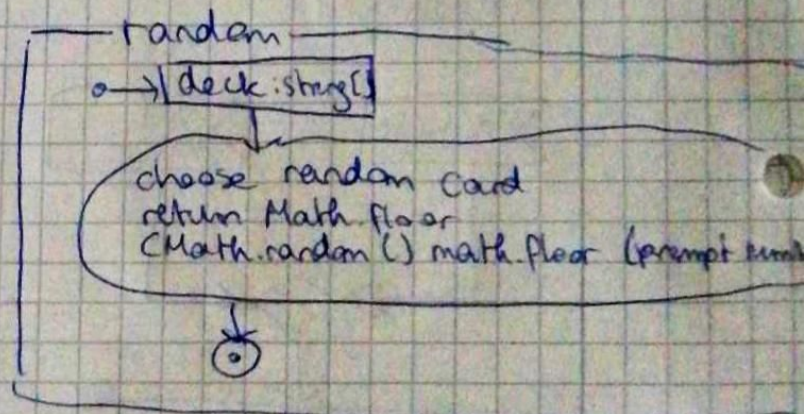 random
deck:string[]
choose random card
return Math.floor
(Math.random () math.floor (prompt